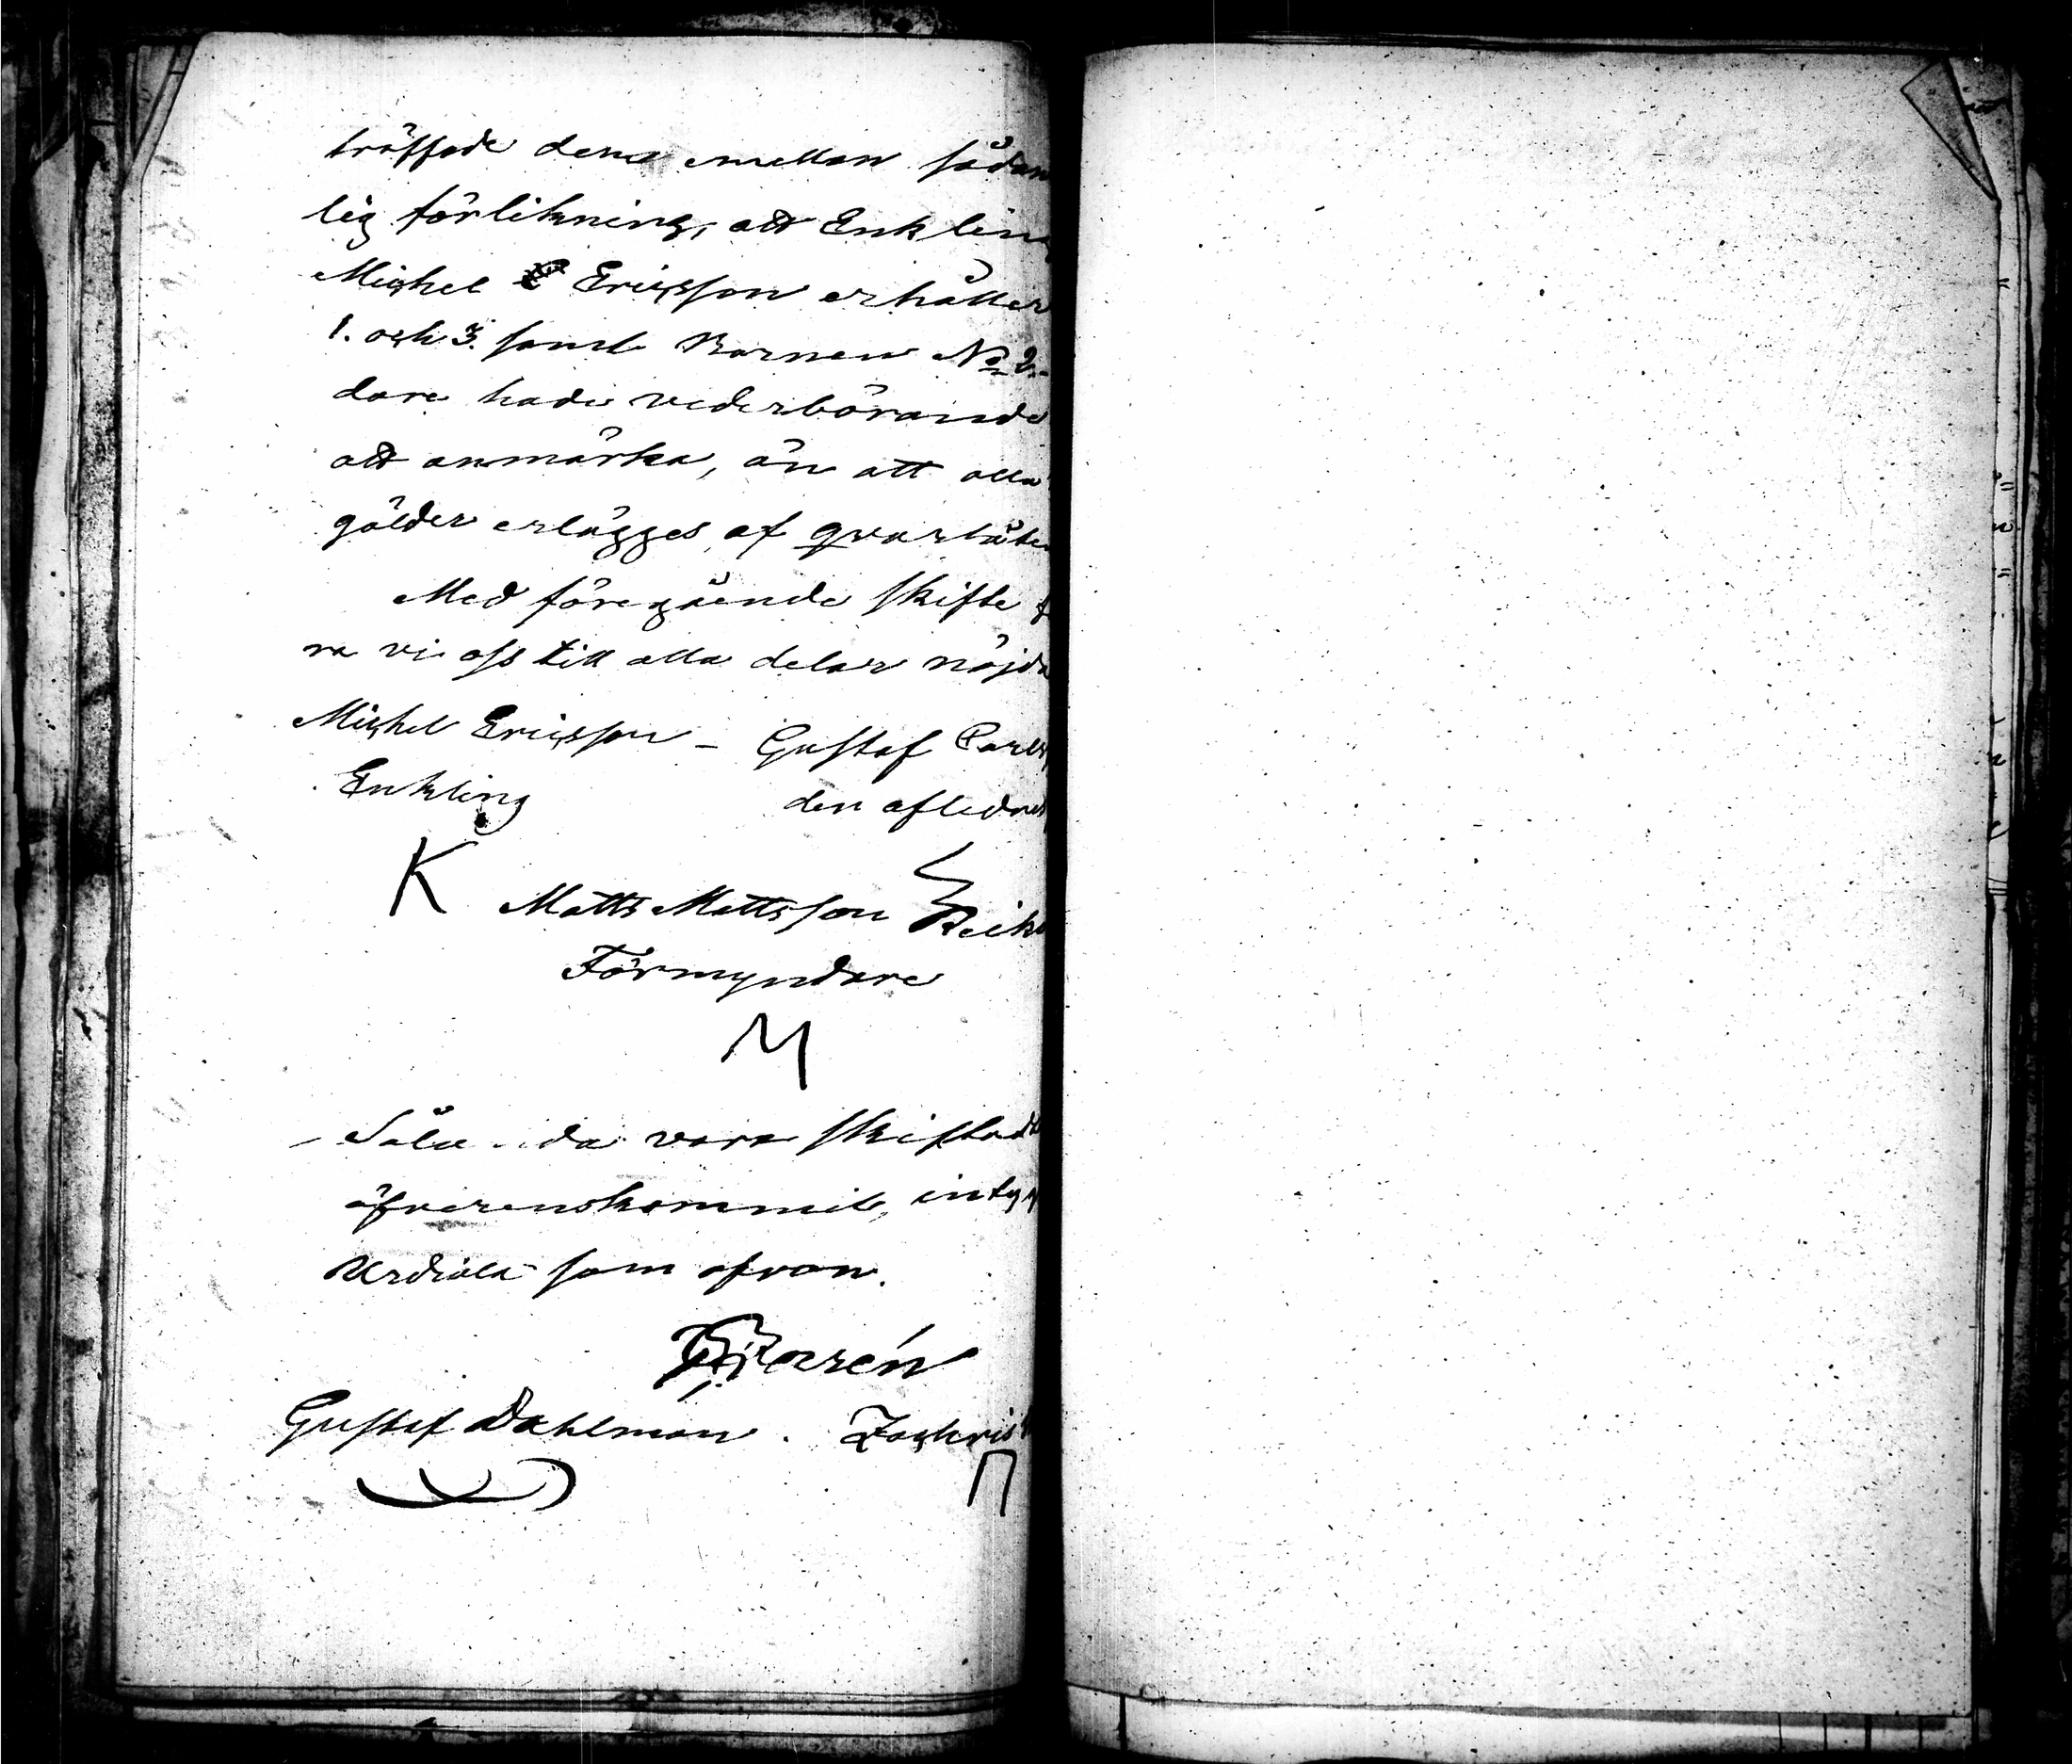 träffade dem emellan sådan
lig förlikning, att Enkling
Michel Ericsson erhåller
1. och 3. samt Barnen No 2.
dare hade vederbörande
att anmärka, än att alla
gälder erlägges af qvarlåten
Med föregående skifte f
ra vi oss till alla delar nöjda
Michel Ericsson – Gustaf Carls
Enkling den aflednes
K Matts Mattsson
Förmyndare
M
Sålunda vara skiftadt
öfverenskommit, intyg
Urdiala som ofvan.
Gustaf Dahlman. Zachris